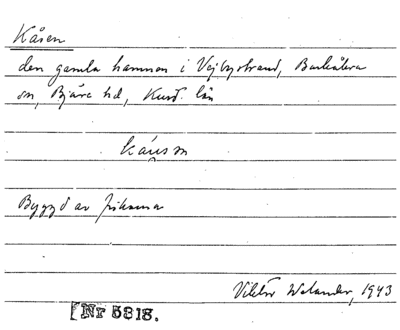 Kåsen
den gamla hamnen i Vejbystrand, Barkåkra
sn, Bjäre hd, Krist. län
Byggd av fiskarna
Viktor Welander, 1943
[Nr 5818.